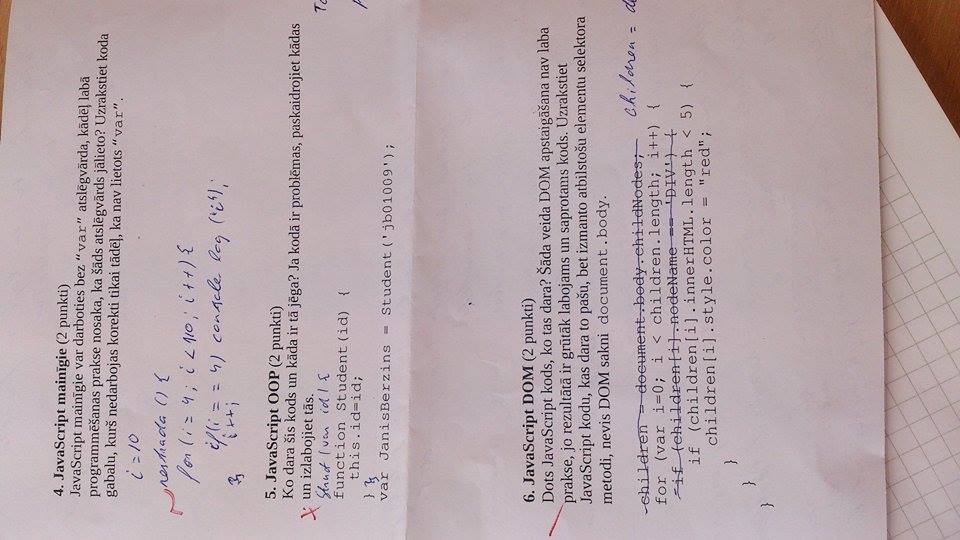 4. JavaScript mainīgie (2 punkti)
JavaScript mainīgie var darboties bez “var” atslēgvārda, kādēļ labā
programmēšanas prakse nosaka, ka šāds atslēgvārds jālieto? Uzrakstiet koda
gabalu, kurš nedarbojas korekti tikai tādēļ, ka nav lietots “var”.
i = 10
() {
for (i = 4; i < 10; i++) {
if (i == 4) console log ('i');
i++;
}
5. JavaScript OOP (2 punkti)
Ko dara šis kods un kāda ir tā jēga? Ja kodā ir problēmas, paskaidrojiet kādas
un izlabojiet tās.
(var id) {
function Student(id) {
this.id=id;
} }
var JanisBerzins = Student('jb01009');
6. JavaScript DOM (2 punkti)
Dots JavaScript kods, ko tas dara? Šāda veida DOM apstaigāšana nav laba
prakse, jo rezultātā ir grūtāk labojams un saprotams kods. Uzrakstiet
JavaScript kodu, kas dara to pašu, bet izmanto atbilstošu elementu selektora
metodi, nevis DOM sakni document.body.
children =
children = document.body.childNodes;
for (var i=0; i < children.length; i++) {
if (children[i].nodeName == 'DIV') {
if (children[i].innerHTML.length < 5) {
children[i].style.color = "red";
}
}
}